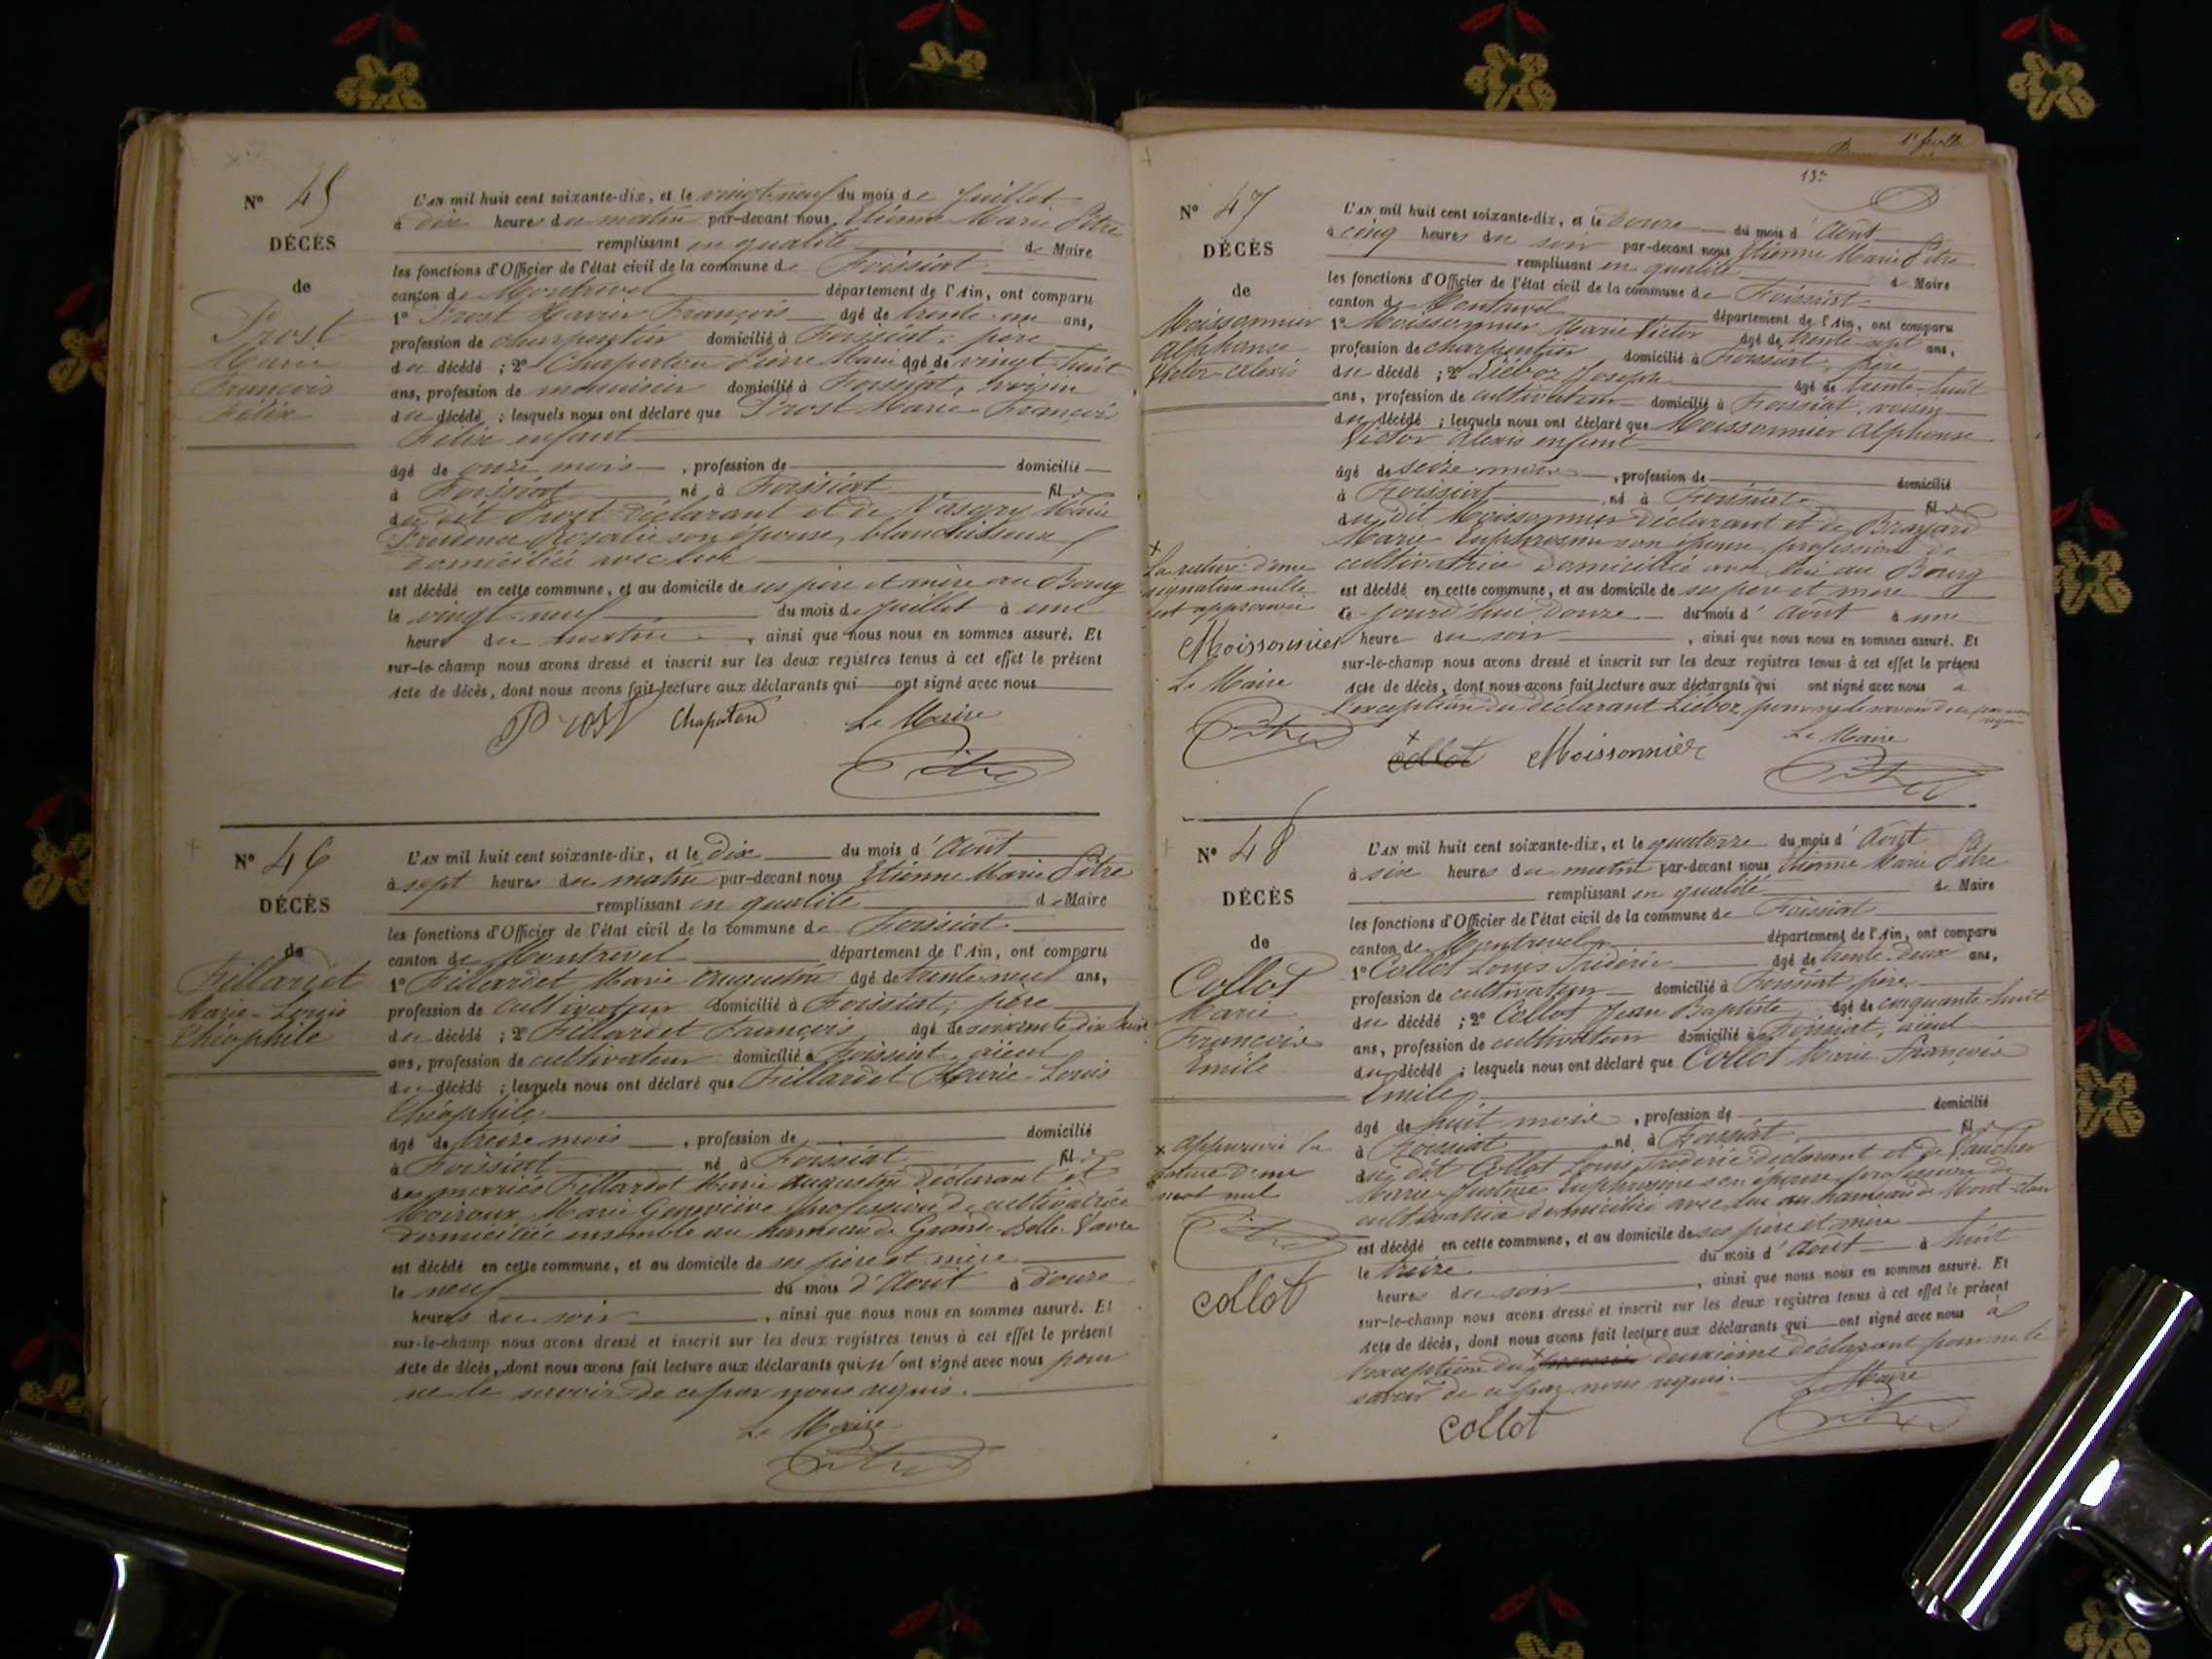 Nº 45
DÉCÈS
de
Prost
Marie
François
Félix
L'AN mil huit cent soixante-dix, et le vingt-neuf du mois de Juillet
à dix heures du matin par-devant nous Etienne Marie Pitre
remplissant en qualité de Maire
les fonctions d'Officier de l'état civil de la commune de Foissiat
canton de Montrevel département de l'Ain, ont comparu
1º Prost Xavier François âgé de trente-un ans,
profession de charpentier domicilié à Foissiat, père
du décédé ; 2º Chapaton Pierre Marie âgé de vingt-huit
ans, profession de menuisier domicilié à Foissiat, voisin
du décédé ; lesquels nous ont déclaré que Prost Marie François
Félix enfant
âgé de onze mois, profession de domicilié
à Foissiat né à Foissiat fils
du dit Prost déclarant et de Marie
Prudence Rosalie son épouse, blanchisseuse
domiciliée avec lui
est décédé en cette commune, et au domicile de ses père et mère au Bourg
le vingt-neuf du mois de Juillet à une
heure du matin, ainsi que nous nous en sommes assuré. Et
sur-le-champ nous avons dressé et inscrit sur les deux registres tenus à cet effet le présent
Acte de décès, dont nous avons fait lecture aux déclarants qui ont signé avec nous
Prost Chapaton Le Maire
Pitre
Nº 46
DÉCÈS
de
Fillardet
Marie-Louis
Théophile
L'AN mil huit cent soixante-dix, et le dix du mois d'Août
à sept heures du matin par-devant nous Etienne Marie Pitre
remplissant en qualité de Maire
les fonctions d'Officier de l'état civil de la commune de Foissiat
canton de Montrevel département de l'Ain, ont comparu
1º Fillardet Marie Augustin âgé de trente-neuf ans,
profession de cultivateur domicilié à Foissiat, père
du décédé ; 2º Fillardet François âgé de soixante-dix-huit
ans, profession de cultivateur domicilié à Foissiat, aïeul
du décédé ; lesquels nous ont déclaré que Fillardet Marie-Louis
Théophile
âgé de treize mois, profession de domicilié
à Foissiat né à Foissiat fils
des mariés Fillardet Marie Augustin déclarant et
Moiroux Marie Geneviève profession de cultivatrice
domiciliés ensemble au hameau de Grande
est décédé en cette commune, et au domicile de ses père et mère
le neuf du mois d'Août à douze
heures du soir, ainsi que nous nous en sommes assuré. Et
sur-le-champ nous avons dressé et inscrit sur les deux registres tenus à cet effet le présent
Acte de décès, dont nous avons fait lecture aux déclarants qui n'ont signé avec nous pour
ne le savoir de ce par nous requis.
Le Maire
Pitre
1e feuille
13e
Nº 47
DÉCÈS
de
Moissonnier
Alphonse
Victor Alexis
L'AN mil huit cent soixante-dix, et le douze du mois d'Août
à cinq heures du soir par-devant nous Etienne Marie Pitre
remplissant en qualité de Maire
les fonctions d'Officier de l'état civil de la commune de Foissiat
canton de Montrevel département de l'Ain, ont comparu
1º Moissonnier Marie Victor âgé de trente-sept ans,
profession de charpentier domicilié à Foissiat, père
du décédé ; 2º Liéboz Joseph âgé de trente-huit
ans, profession de cultivateur domicilié à Foissiat, voisin
du décédé ; lesquels nous ont déclaré que Moissonnier Alphonse
Victor Alexis enfant
âgé de seize mois, profession de domicilié
à Foissiat né à Foissiat fils
du dit Moissonnier déclarant et de Brayard
Marie Euphrosine son épouse profession de
cultivatrice domiciliée avec lui au Bourg
est décédé en cette commune, et au domicile de ses père et mère
ce-jourd'hui douze du mois d'Août à une
heure du soir, ainsi que nous nous en sommes assuré. Et
sur-le-champ nous avons dressé et inscrit sur les deux registres tenus à cet effet le présent
Acte de décès, dont nous avons fait lecture aux déclarants qui ont signé avec nous à
l'exception du déclarant Liéboz, pour ne le savoir de ce par nous requis
x
La rature d'une
signature nulle
est approuvée
Moissonnier
Le Maire
Pitre
x
Collot Moissonnier
Le Maire
Pitre
Nº 48
DÉCÈS
de
Collot
Marie
François
Emile
L'AN mil huit cent soixante-dix, et le quatorze du mois d'Août
à six heures du matin par-devant nous Etienne Marie Pitre
remplissant en qualité de Maire
les fonctions d'Officier de l'état civil de la commune de Foissiat
canton de Montrevel département de l'Ain, ont comparu
1º Collot Louis Frédéric âgé de trente-deux ans,
profession de cultivateur domicilié à Foissiat père
du décédé ; 2º Collot Jean Baptiste âgé de cinquante-huit
ans, profession de cultivateur domicilié à Foissiat, aïeul
du décédé ; lesquels nous ont déclaré que Collot Marie François
Emile
âgé de huit mois, profession de domicilié
à Foissiat né à Foissiat fils
du dit Collot Louis Frédéric déclarant et de Vaucher
Marie-Justine Euphrosine son épouse profession de
cultivatrice domiciliée avec lui au hameau de
est décédé en cette commune, et au domicile de ses père et mère
le treize du mois d'Août à huit
heures du soir, ainsi que nous nous en sommes assuré. Et
sur-le-champ nous avons dressé et inscrit sur les deux registres tenus à cet effet le présent
Acte de décès, dont nous avons fait lecture aux déclarants qui ont signé avec nous à
l'exception du deuxième déclarant pour ne le
savoir de ce par nous requis.
Le Maire
Pitre
collot
x Approuvé la
rature d'un
mot nul
Pitre
collot